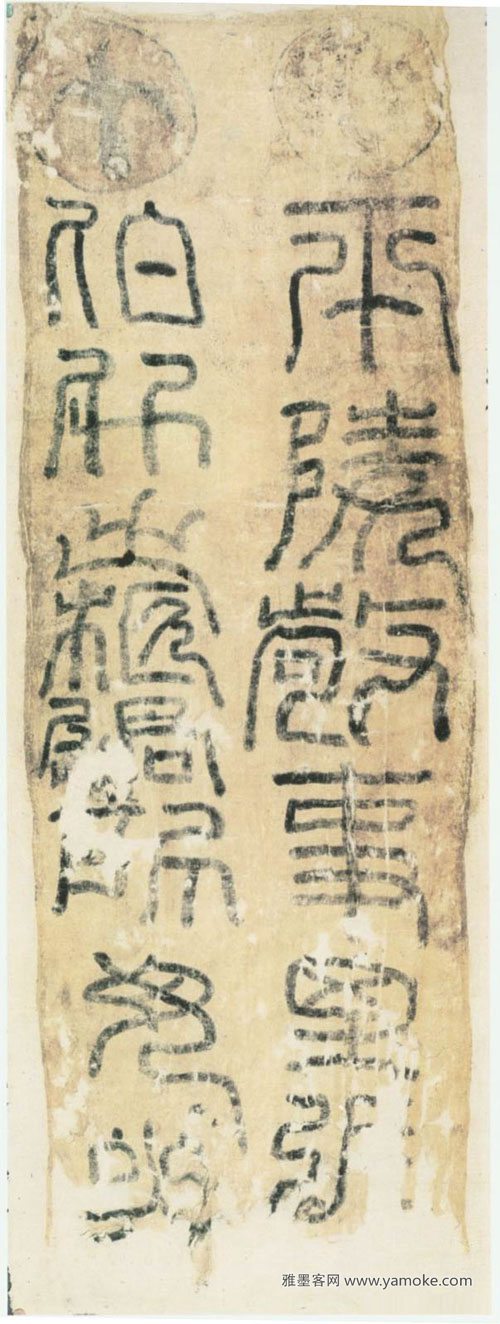 平陵敬事里張
伯升之柩過所毋哭
雅墨客网 www.yamoke.com